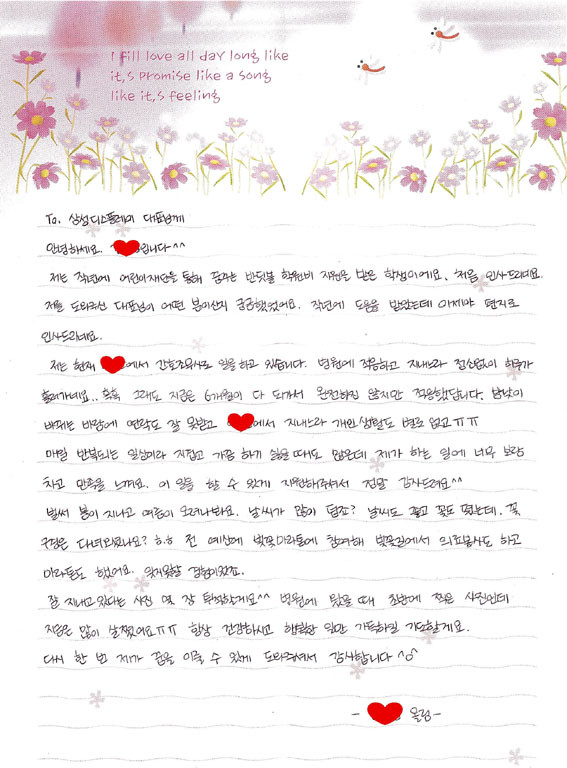 I fill love all day long like
it,s promise like a song
like it,s feeling
To. 삼성디스플레이 대표님께
안녕하세요. 입니다^^
저는 작년에 어린이재단을 통해 꿈꾸는 반딧불 학원비 지원을 받은 학생이에요. 처음 인사드리네요.
저를 도와주신 대표님이 어떤 분이신지 궁금했었어요. 작년에 도움을 받았는데 이제야 편지로
인사드리네요.
저는 현재 에서 간호조무사로 일을 하고 있습니다. 병원에 적응하고 지내느라 정신없이 하루가
흘러가네요.. 흑흑 그래도 지금은 6개월이 다 되가서 완전하진 않지만 적응했답니다. 밤낮이
바뀌는 바람에 연락도 잘 못받고 에서 지내느라 개인생활도 별로 없고ㅠㅠ
매일 반복되는 일상이라 지겹고 가끔 하기 싫을 때도 많은데 제가 하는 일에 너무 보람
차고 만족을 느껴요. 이 일을 할 수 있게 지원해주셔서 정말 감사드려요^^
벌써 봄이 지나고 여름이 오려나봐요. 날씨가 많이 덥죠? 날씨도 좋고 꽃도 폈는데. 꽃
구경은 다녀오셨나요? ㅎ.ㅎ 전 예산에 벚꽃마라톤에 참여해 벚꽃길에서 의료봉사도 하고
마라톤도 했어요. 잊지못할 경험이었죠.
잘 지내고 있다는 사진 몇 장 투척할게요^^ 병원에 있을 때 초반에 찍은 사진인데
지금은 많이 살쪘어요ㅠㅠ 항상 건강하시고 행복한 일만 가득하길 기도할게요.
다시 한 번 제가 꿈을 이룰 수 있게 도와주셔서 감사합니다 ^o^
- 올림-